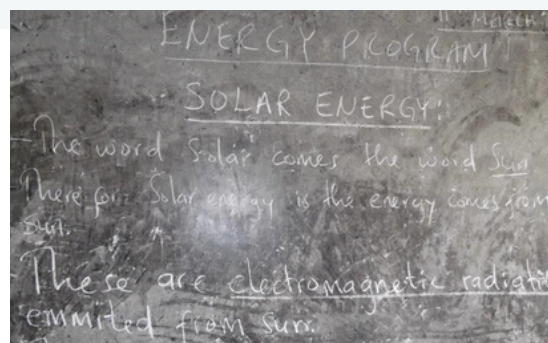 11 March
ENERGY PROGRAM
SOLAR ENERGY:
- The word Solar comes the word Sun
There for Solar energy is the energy comes from
sun.
- These are electromagnetic radiati
emmited from Sun.